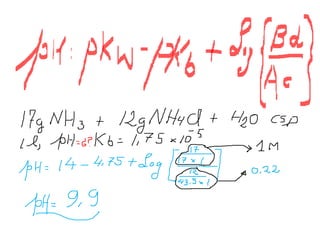 pH: pKw-pKb + Log {Bd/Ac}
17g NH3 + 12g NH4Cl + H2O csp
1l, pH=¿? Kb = 1,75 × 10^-5
pH= 14 - 4,75 + Log [(17/17 × 1)/(12/43.5 × 1)] → 1M → 0.22
pH= 9,9